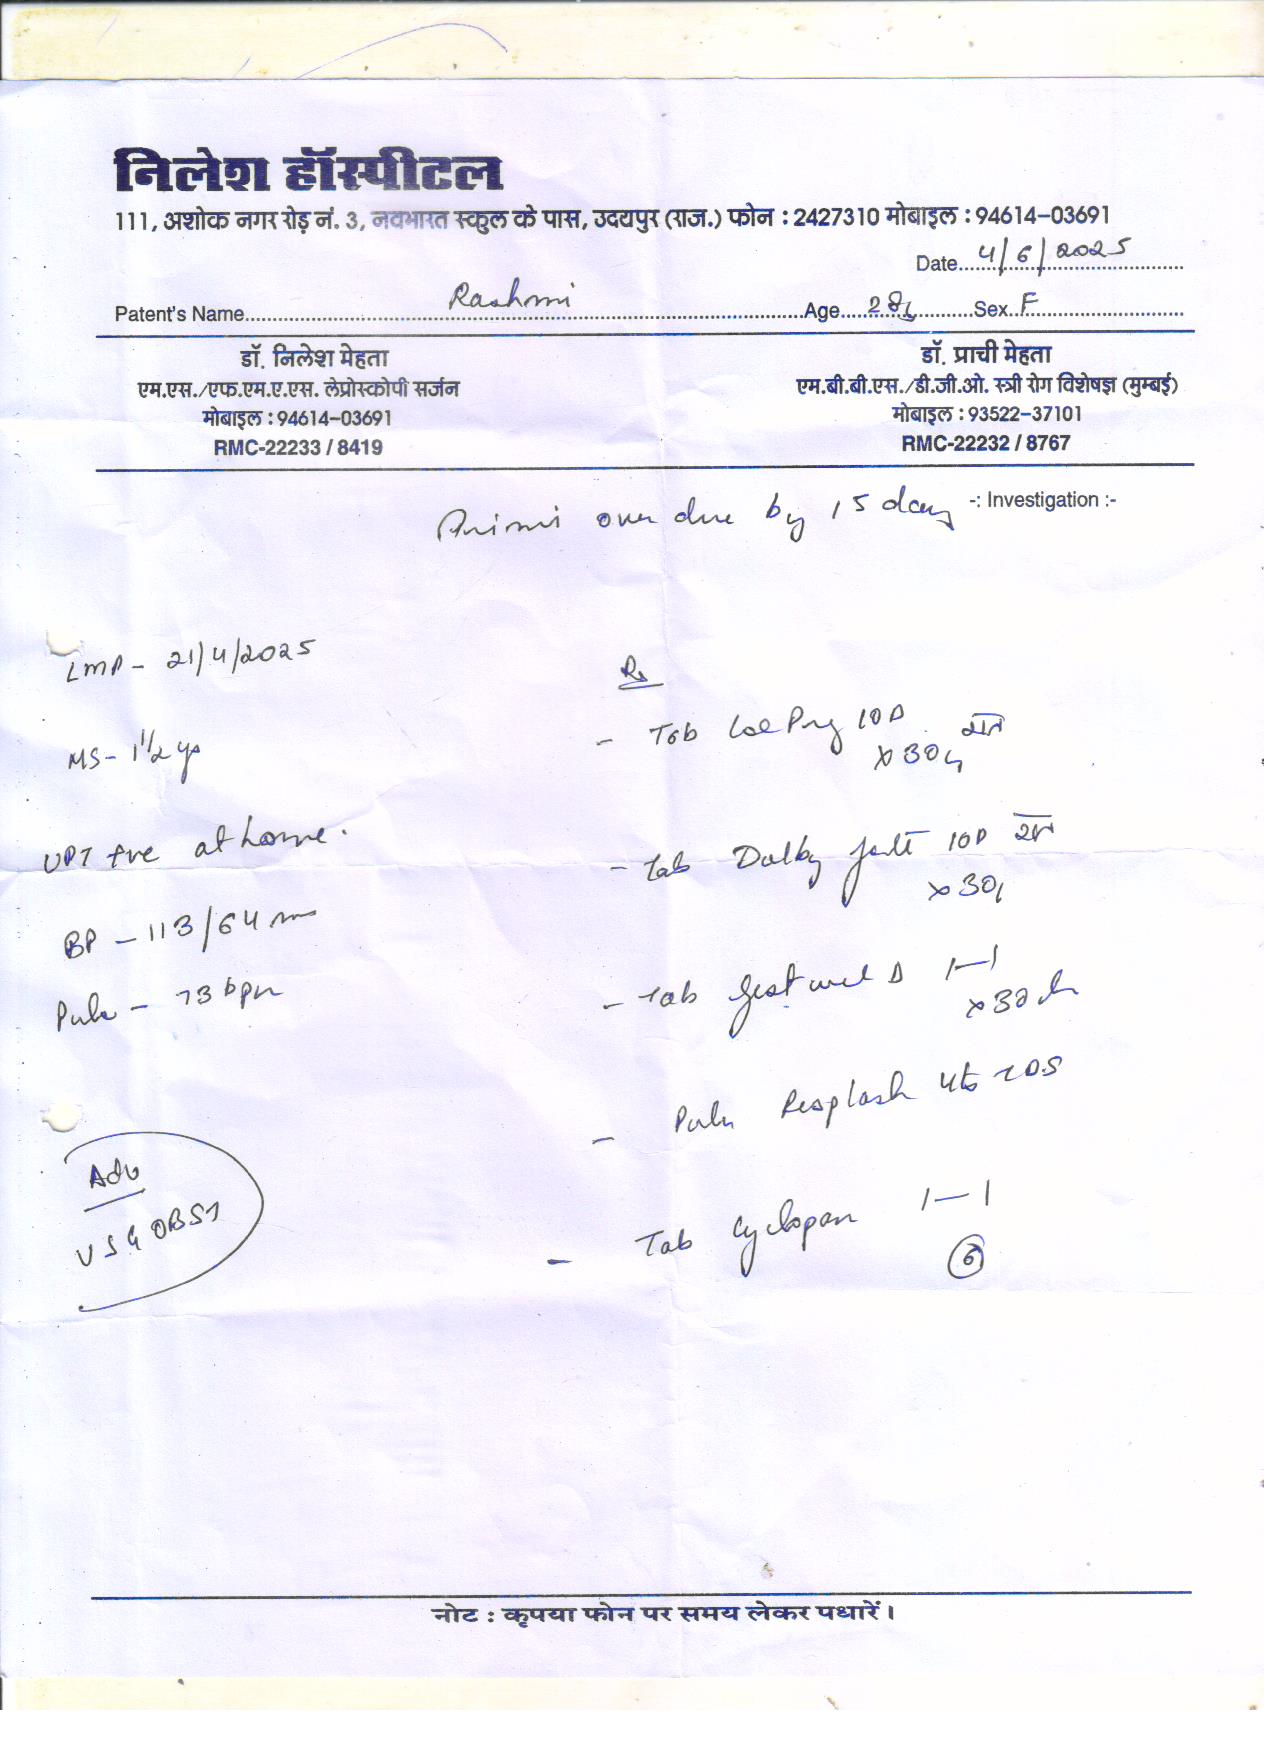 निलेश हॉस्पीटल
111, अशोक नगर रोड़ नं. 3, नवभारत स्कुल के पास, उदयपुर (राज.) फोन : 2427310 मोबाइल : 94614-03691
Date 4/6/2025
Patent's Name Rashmi Age 28y Sex F
डॉ. निलेश मेहता
एम.एस./एफ.एम.ए.एस. लेप्रोस्कोपी सर्जन
मोबाइल : 94614-03691
RMC-22233 / 8419
डॉ. प्राची मेहता
एम.बी.बी.एस./डी.जी.ओ. स्त्री रोग विशेषज्ञ (मुम्बई)
मोबाइल : 93522-37101
RMC-22232 / 8767
-: Investigation :-
over due by 15 day
LMP - 21/4/2025
MS - 1 1/2 yr
UPT +ve at home.
BP - 113/64 mm
Pulse - 73 bpm
Adv
USG OBST
Rx
- Tab 10D
x 30
- Tab 10D
x 30
- Tab D 1-1
x 30
-
- Tab Cyclopam 1-1
6
नोट : कृपया फोन पर समय लेकर पधारें।